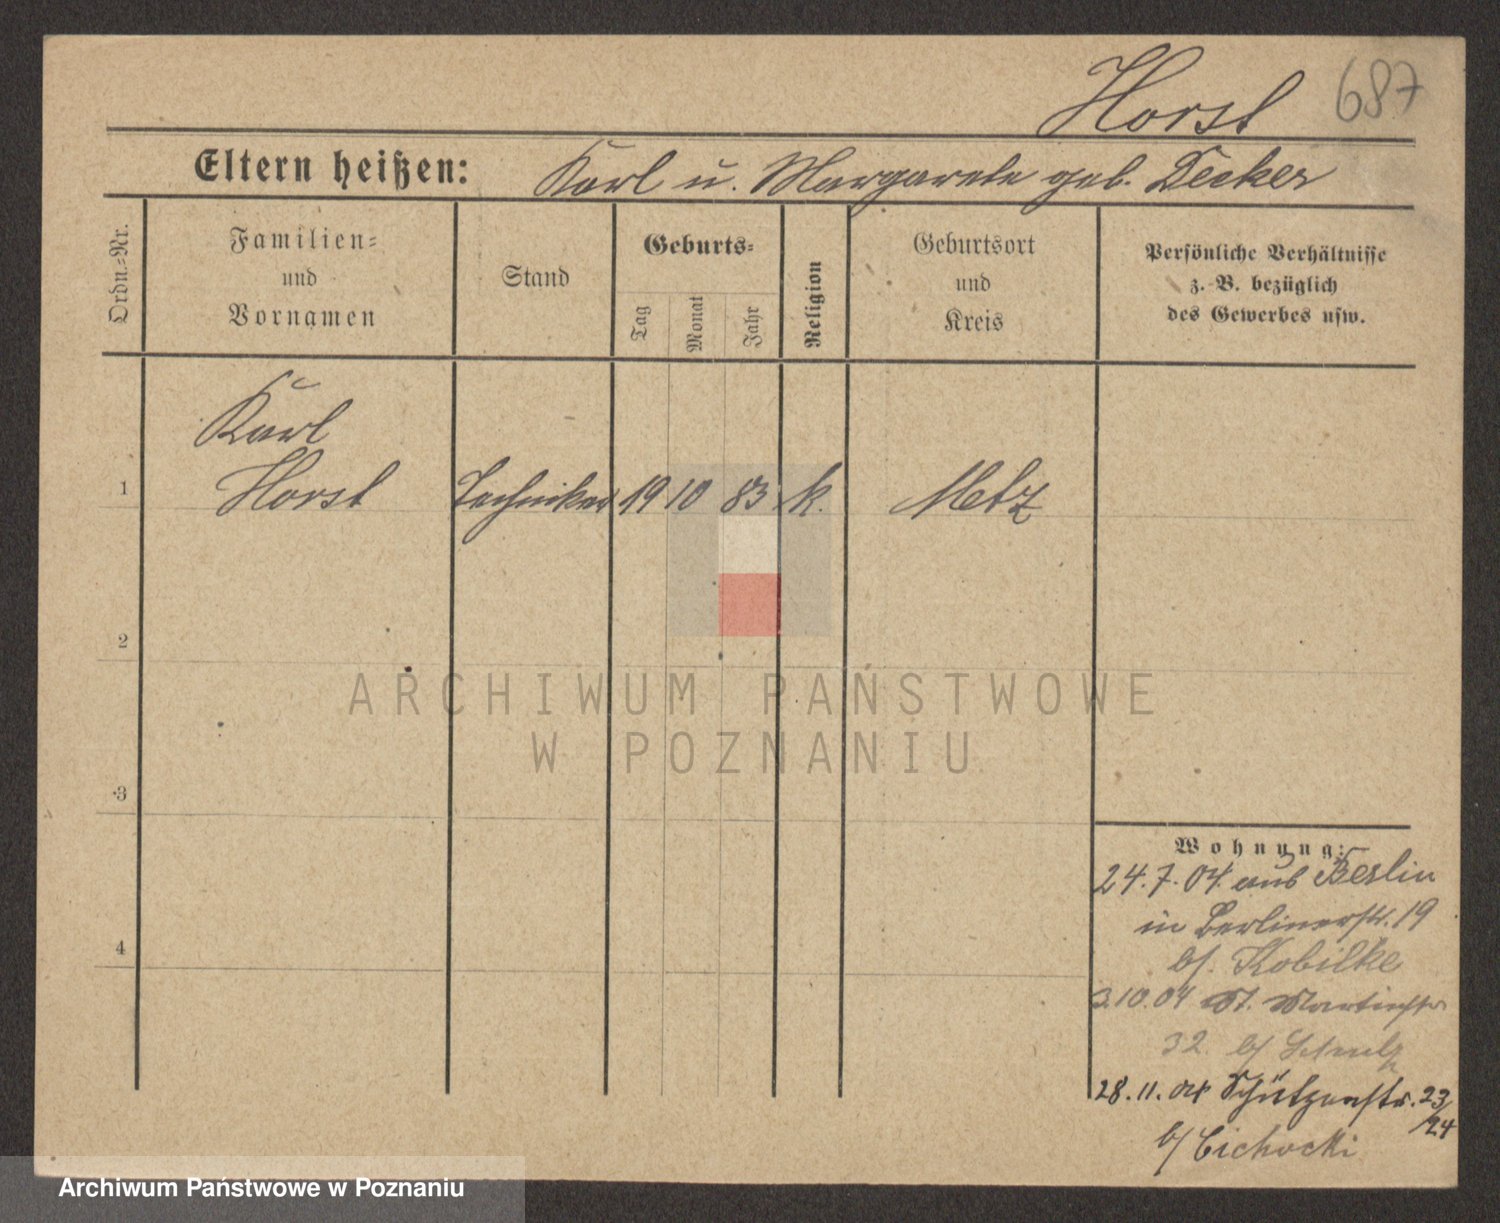 Horst
687
Eltern heißen: Karl u. Margarete geb. Decker
Ordn.-Nr.
Familien-
und
Vornamen
Stand
Geburts-
Tag
Monat
Jahr
Religion
Geburtsort
und
Kreis
Persönliche Verhältnisse
z. B. bezüglich
des Gewerbes usw.
Karl
1 Horst Techniker 19 10 83 k. Metz
2
ARCHIWUM PAŃSTWOWE
W POZNANIU
3
Wohnung:
24.7.04. aus Berlin
in Berlinerstr. 19
b/. Kobilke
4
3.10.04 St. Martinstr
32. b/ Schulz
28.11.04 Schützenstr. 23/24
b/ Cichocki
Archiwum Państwowe w Poznaniu